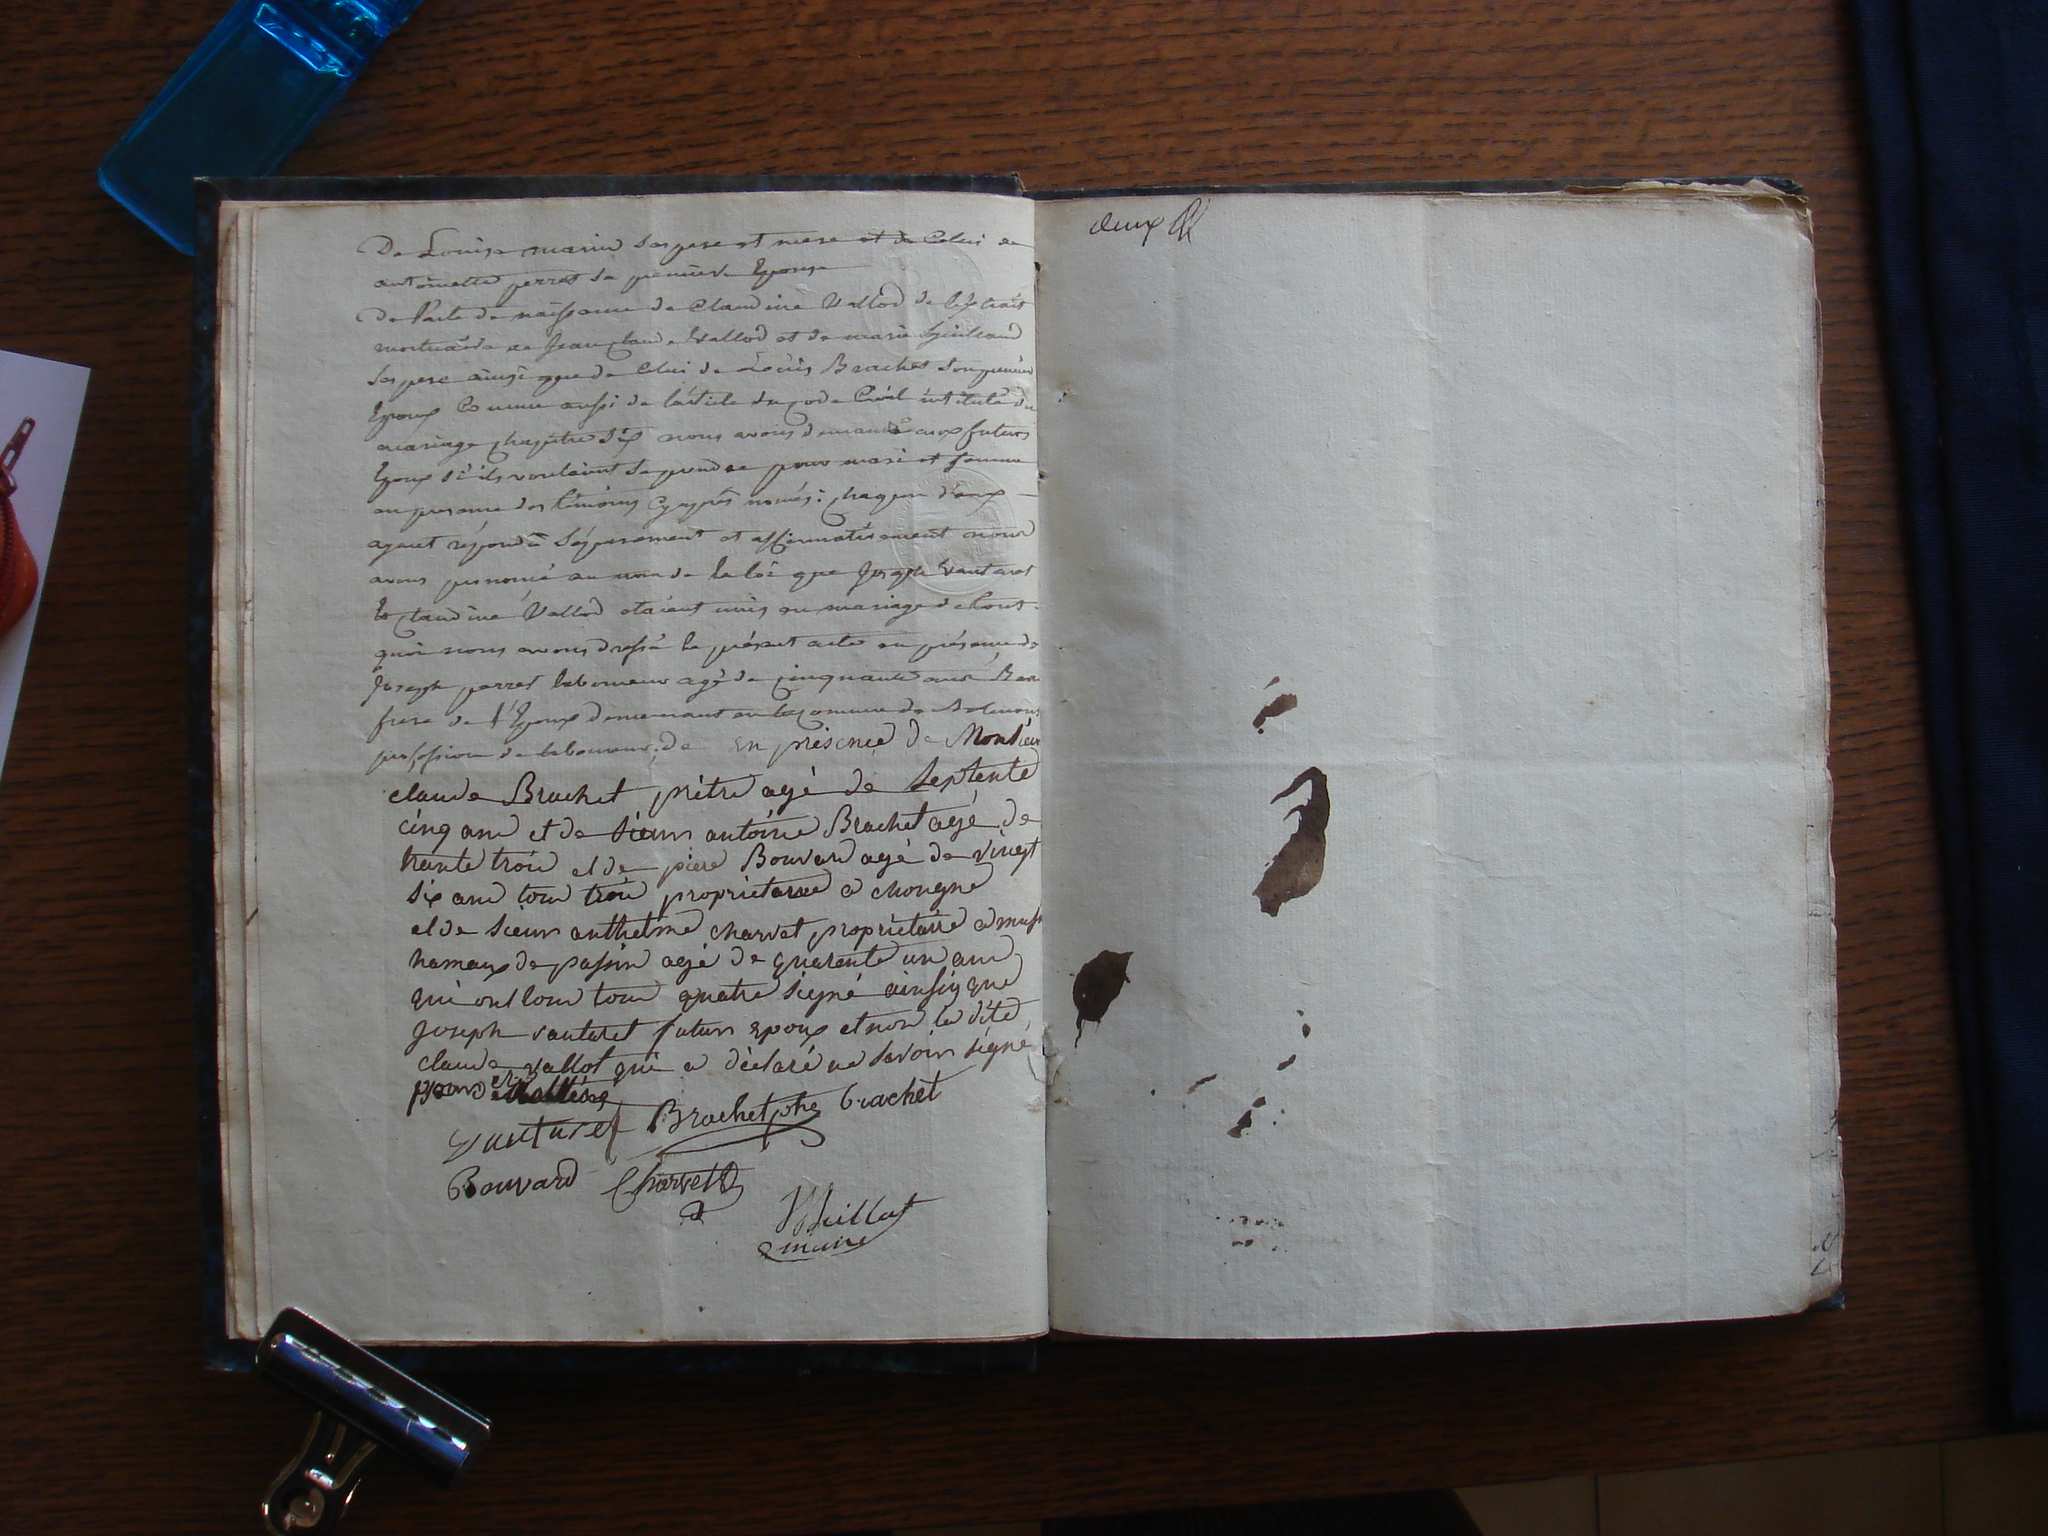 De Louise marin ses pere et mere et de Celui de
antoinette perret sa premiere Epouse
De l'acte de naissance de Claudine Vallod de l'extrait
mortuaire de Jean claude Vallod et de marie
ses pere ainsi que de Celui de Louis Brachet son premier
Epoux Comme aussi de l'article du code Civil intitulé du
mariage chapitre six nous avons demandé aux futurs
Epoux s'ils voulaient se prendre pour mari et femme
en presence des témoins cy après només: chaqun d'eux
ayant répondû séparement et affirmativement nous
avons prenoncé au nom de la loi que Joseph Vautaret
Et Claudine Vallod etaient unis en mariage de tout
quoi nous avons dressé le présent acte en présence de
Joseph perret laboureur agé de cinquante ans Beau
frere de l'Epoux demeurant en la comune de
profession de laboureur. de en présence de Monsieur
claude Brachet prêtre agé de septente
cinq ans et de sieur antoine Brachet agé de
trante trois et de piere Bouvard agé de vingt
six ans tous trois proprietaire a chongne
et de sieur anthelme charvet propriétaire a
hamaux de passin agé de quarente un ans
qui ont tous quatre signé ainsin que
Joseph vautaret futur epoux et non la dite
claude vallot qui a déclaré ne savoir signé
Vautaret Brachet ptre Brachet
Bouvard Charvet
maire
deux